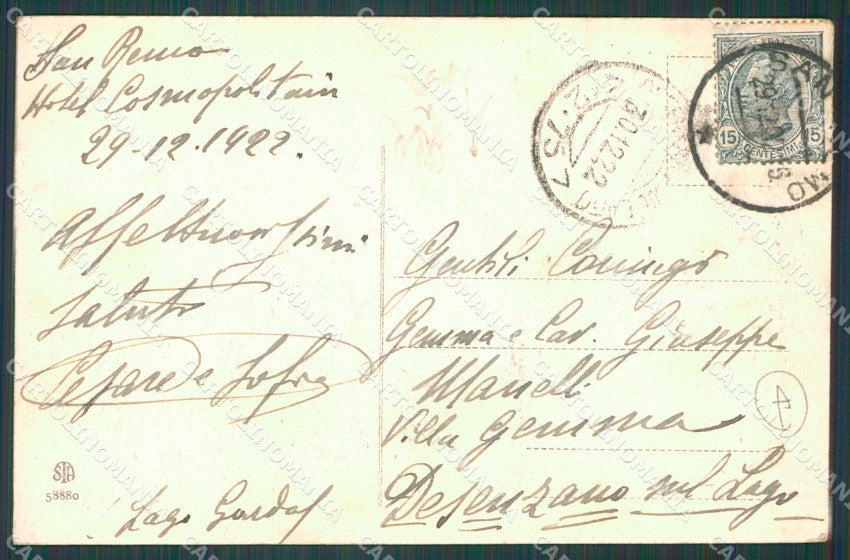 San Remo
Hotel Cosmopolitain
29-12.1922.
Affettuosissimi
saluti
Cesare e Sofia
STA
58880
Lago Garda
30.12.22
SAN
15 15
CENTESIMI
Gentili Coniugi
Gemma e Cav. Giuseppe
Villa Gemma
Desenzano sul Lago
CARTOLINOMANIA